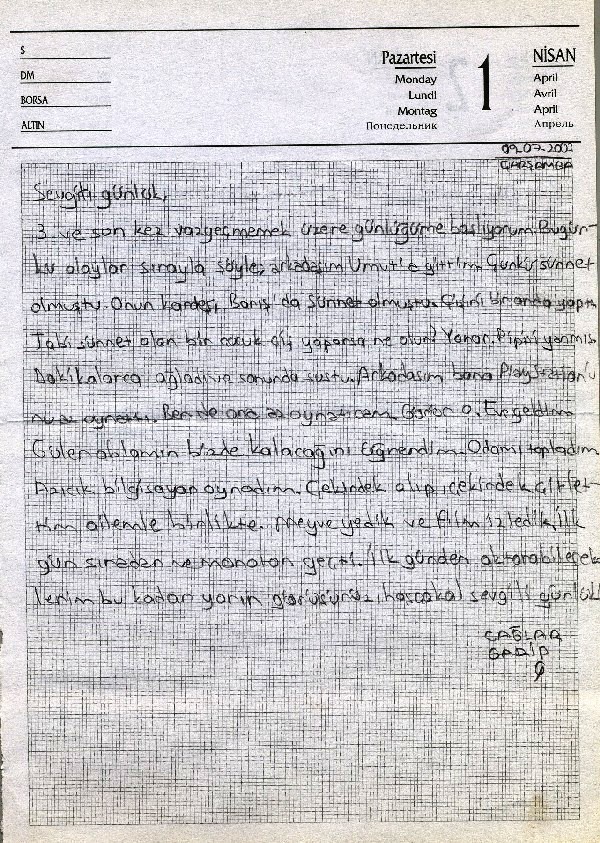 $
DM
BORSA
ALTIN
Pazartesi
Monday
Lundi
Montag
Понедельник
1
NİSAN
April
Avril
April
Апрель
09.07.200
ÇARŞAMBA
Sevgili günlük,
3. ve son kez vazgeçmemek üzere günlüğüme başlıyorum. Bugün-
kü olaylar sırayla şöyle, arkadaşım Umut'e gittim. Çünkü sünnet
olmuştu. Onun kardeşi, Barış'da sünnet olmuştu. Çişini bir anda yaptı
Tabi sünnet olan bir çocuk çiş yaparsa ne olur? Yanar. Pipisi yanmış
Dakikalarca ağladı ve sonunda sustu. Arkadaşım bana PlayStation'u
az oynattı. Ben de ona az oynatıcam. Görür o. Eve geldim
Gülen ablamın bizde kalacağını öğrendim. Odamı topladım
Azıcık bilgisayar oynadım. Çekirdek alıp, çekirdek çitlet-
tim ailemle birlikte. Meyve yedik ve film izledik. İlk
gün sıradan ve monoton geçti. İlk günden aktarabilecek
lerim bu kadar yarın görüşürüz, hoşçakal sevgili günlük
ÇAĞLAR
GARİP